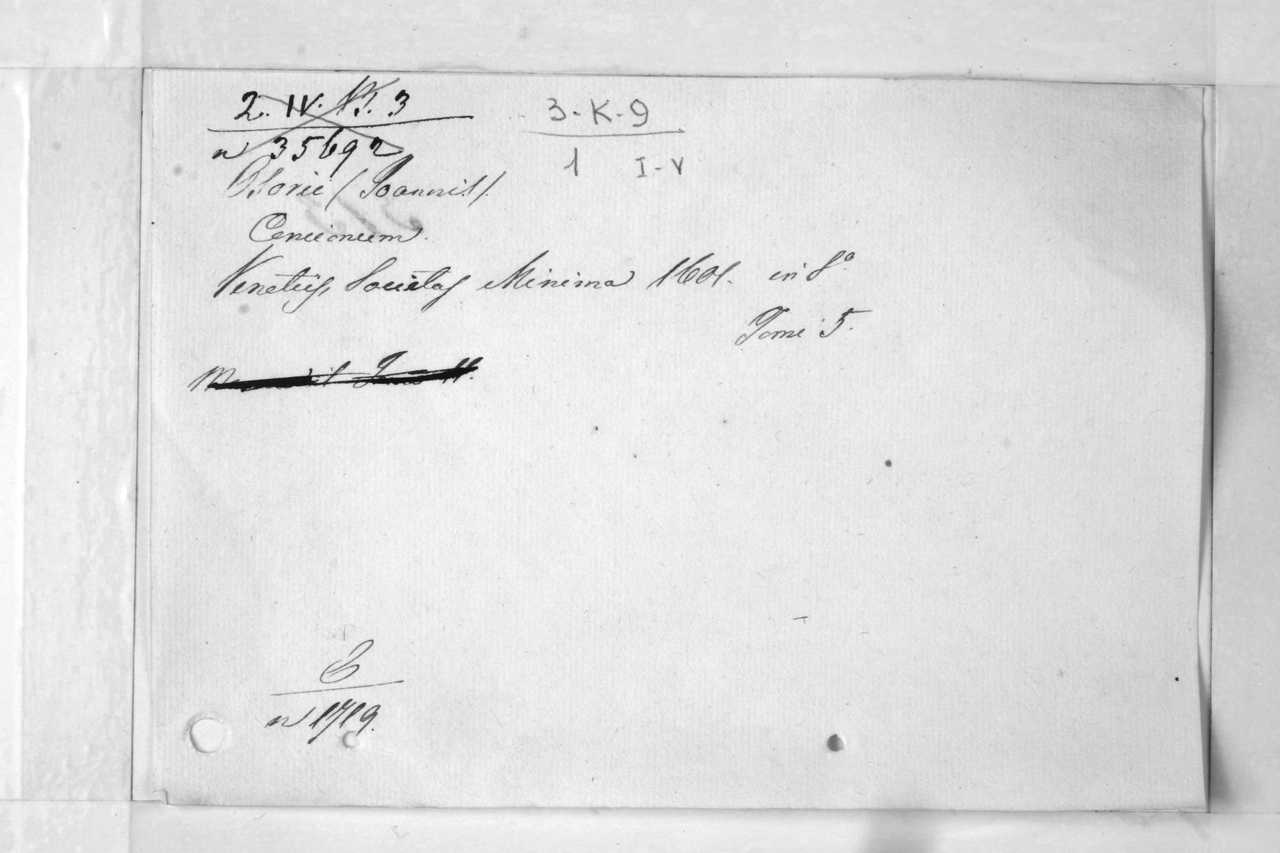 2. IV. 3
3-K-9
n 35692
1 I-V
Osorii (Joannis).
Concionum.
Venetiis, Societas Minima 1601. in 8º
Tomi 5.
C
n 1719.